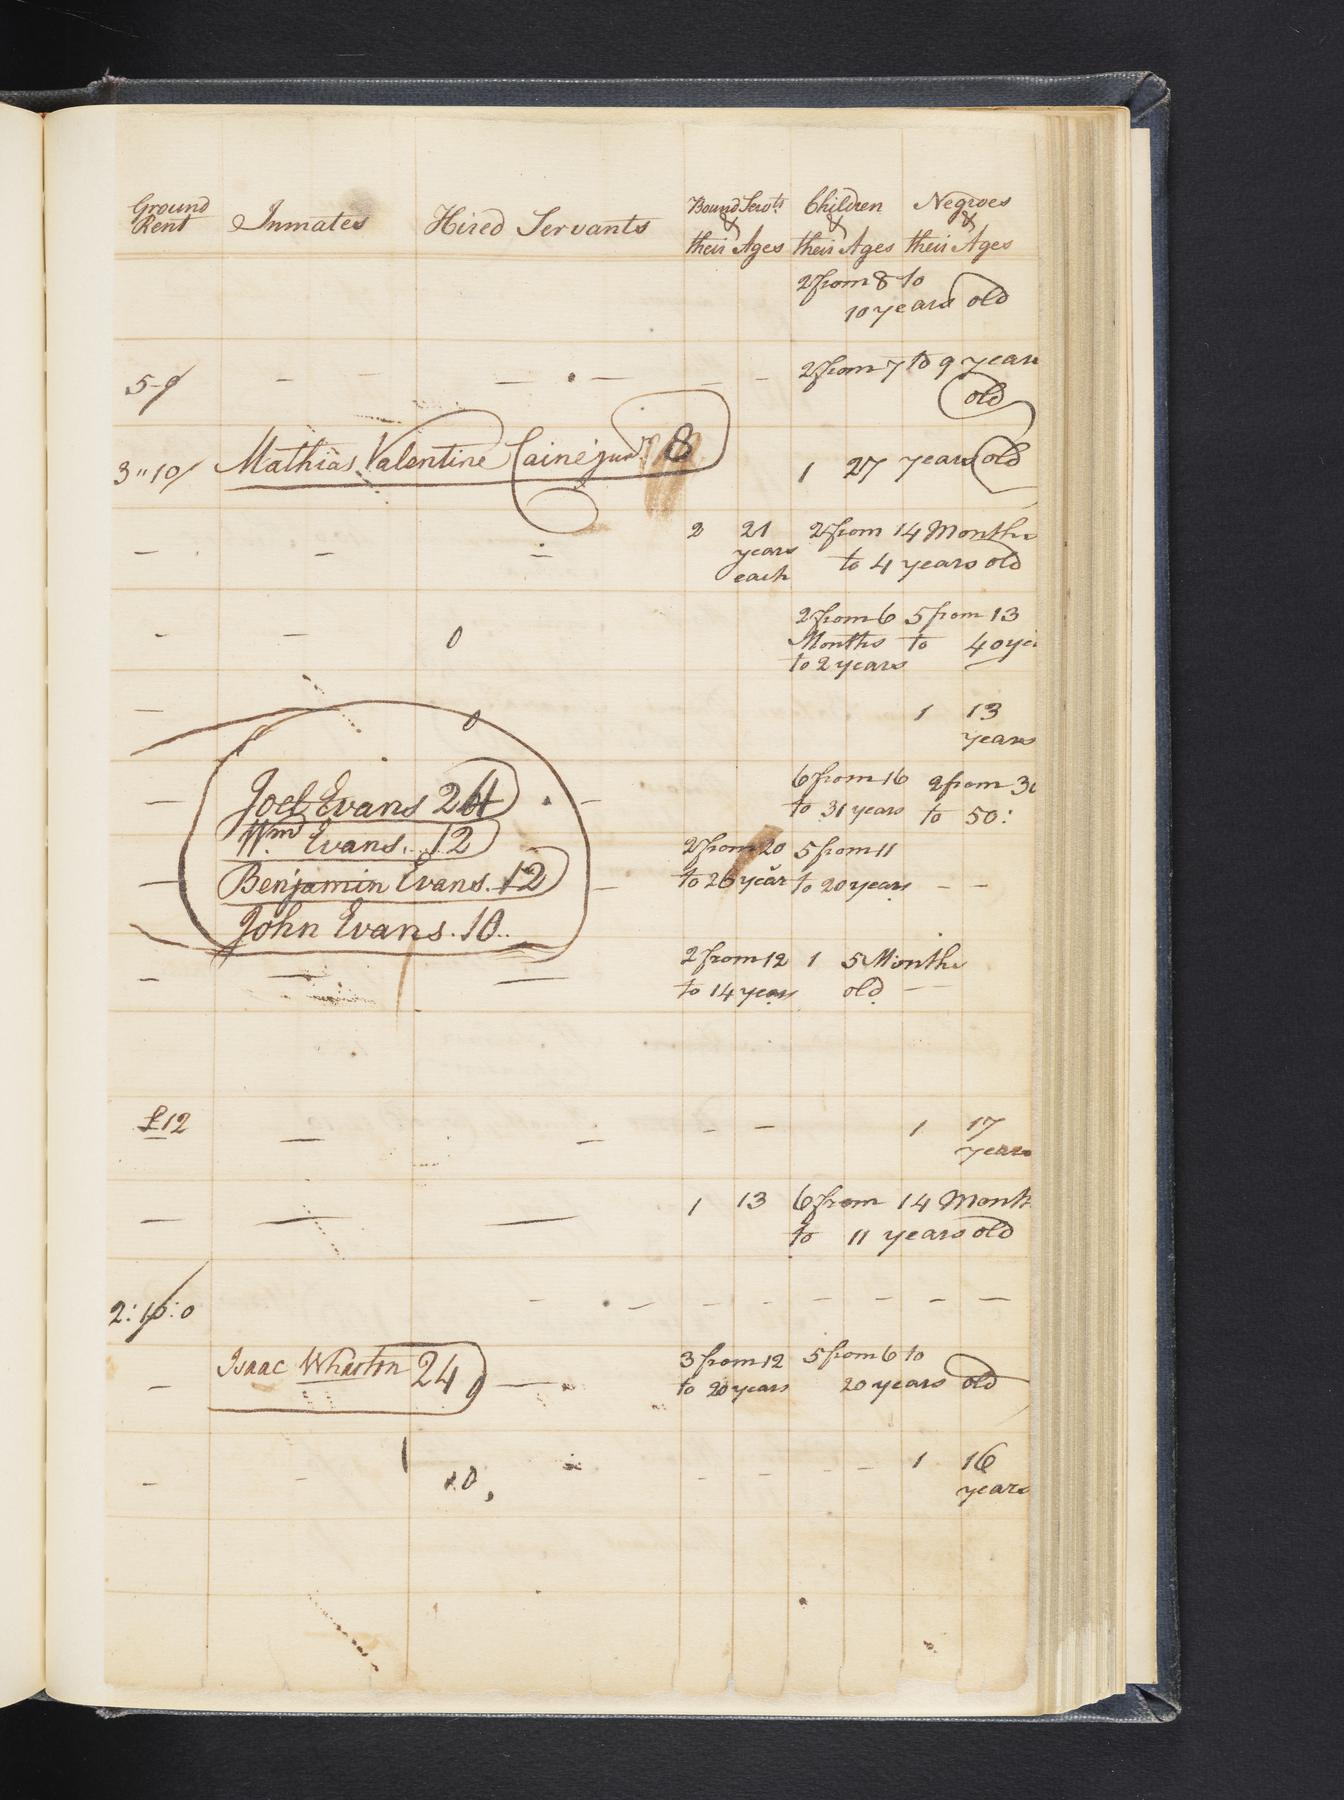 Ground Rent Inmates Hired Servants Bound Servts & their Ages Children & their Ages Negroes & their Ages
2 from 8 to
10 years old
5-9 - - - - - - 2 from 7 to 9 years
old
3"10/ Mathias Valentine Caine junr 8 1 27 years old
- - - 2 21 years each 2 from 14 Months
to 4 years old
- - 0 2 from 6 Months to 2 years 5 from 13 to 40
- 0 1 13 years
- Joel Evans 24 - 6 from 16 to 31 years 2 from 30 to 50:
Wm Evans. 12
- Benjamin Evans. 12 - 2 from 20 to 26 year 5 from 11 to 20 years - -
John Evans. 10
- - - 2 from 12 to 14 years 1 5 Months old - -
£12 - - - - 1 17 years
- - - 1 13 6 from 14 Month
to 11 years old
2:10:0 - - - - - - - -
- Isaac Wharton 24 - 3 from 12 to 20 years 5 from 6 to
20 years old
- - - - - - 1 16 years